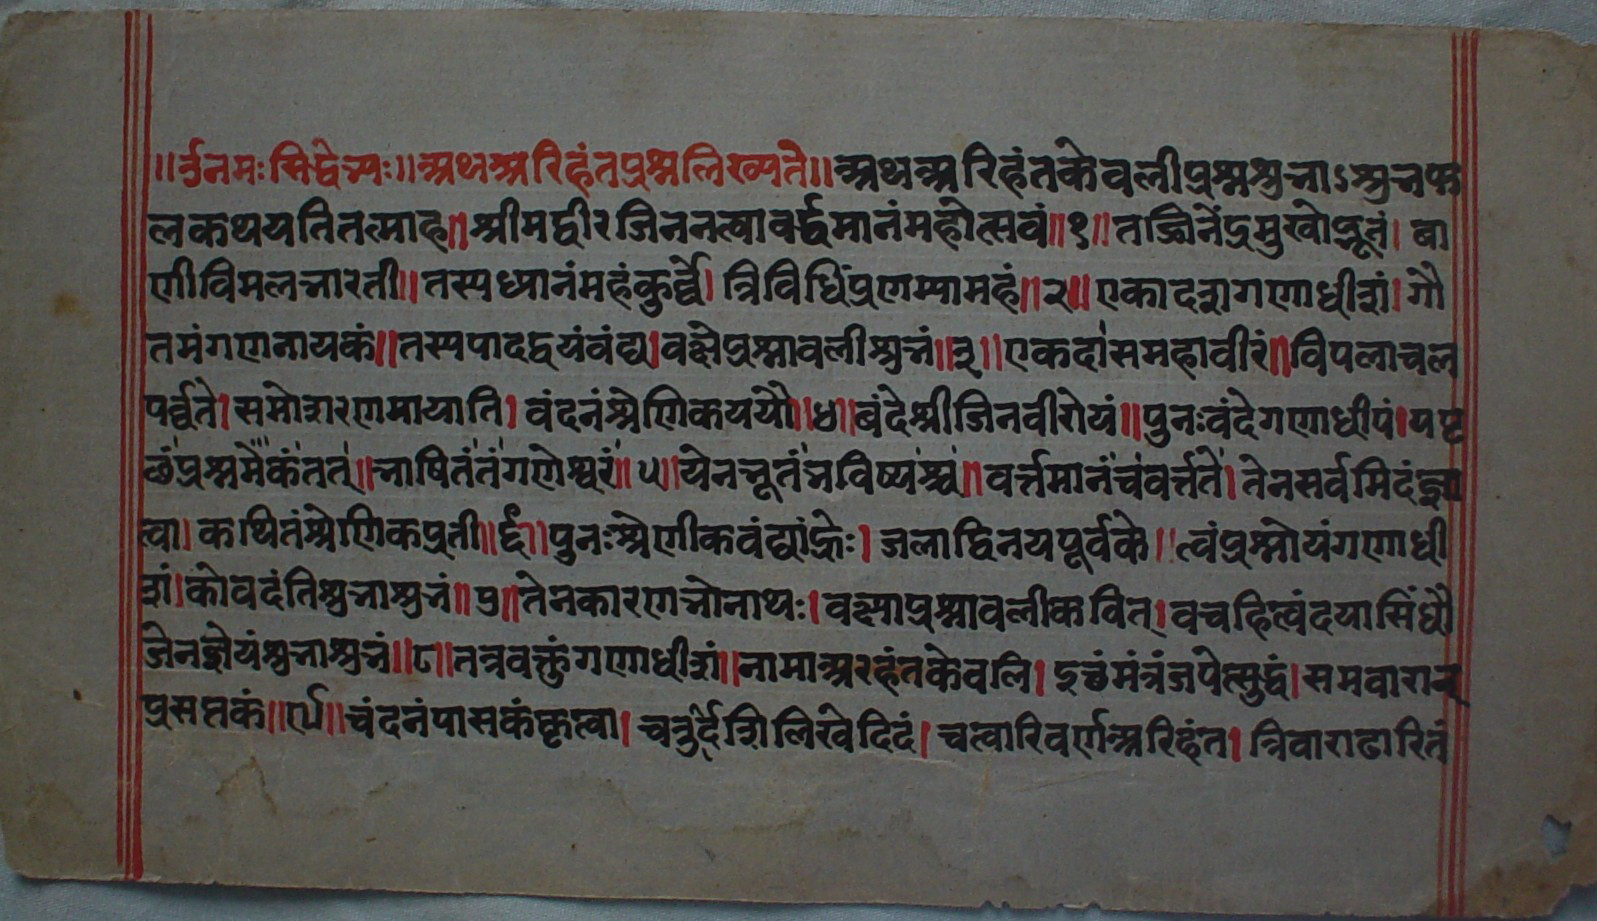 ॥ॐनमःसिद्धेभ्यः॥अथअरिहंतप्रश्नलिख्यते॥अथअरिहंतकेवलीप्रश्नशुभाऽशुभफ
लकथयतितत्माह॥श्रीमद्वीरजिननत्वावर्द्धमानंमहोत्सवं॥१॥तज्जिनेंद्रमुखोद्भूतं।वा
णीविमलभारती॥तस्यध्यानंमहंकुर्व्वे।त्रिविधिंप्रणम्यामहं॥२॥एकादशगणाधीशं।गौ
तमंगणनायकं॥तस्यपादद्वयंवंद्य।वक्षेप्रश्नावलीश्रुभं॥३॥एकदासमहावीरं॥विपलाचल
पर्व्वते।समोशरणमायाति।वंदनंश्रेणिकययौ॥४॥बंदेश्रीजिनवीरोयं॥पुनःवंदेगणाधीपं।यपृ
छंप्रश्नमेकंतत्॥भाषितंतंगणेश्वरं॥५॥येनभूतंभविष्यश्च॥वर्त्तमानंचवर्त्तते।तेनसर्वमिदंज्ञा
त्वा।कथितंश्रेणिकप्रती॥६॥पुनःश्रेणीकवंद्यांह्रेः।जलाद्विनयपूर्वके॥त्वंप्रश्नोयंगणाधी
शं।कोवदंतिशुभाशुभं॥७॥तेनकारणभोनाथः।वक्ष्याप्रश्नावलीकवित्।वचहित्वंदयासिंधौ
जेनज्ञेयंशुभाशुभं॥८॥तत्रवक्तुंगणाधीशं॥नामाअरहंतकेवलि।इछंमंत्रंजपेत्सुद्धं।समवारान्
प्रसप्तकं॥९॥चंदनंपासकंकृत्वा।चतुर्दशिलिखेदिदं।चत्वारिवर्णअरिहंत।त्रिवाराढारितं